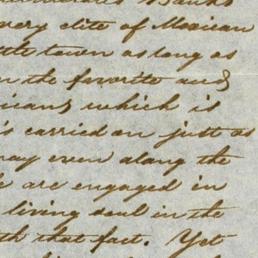 Banks
very elite of Mexican
town as long as
the favorite and
which is
carried on just as
may even along the
are engaged in
living soul in the
that fact. Yet